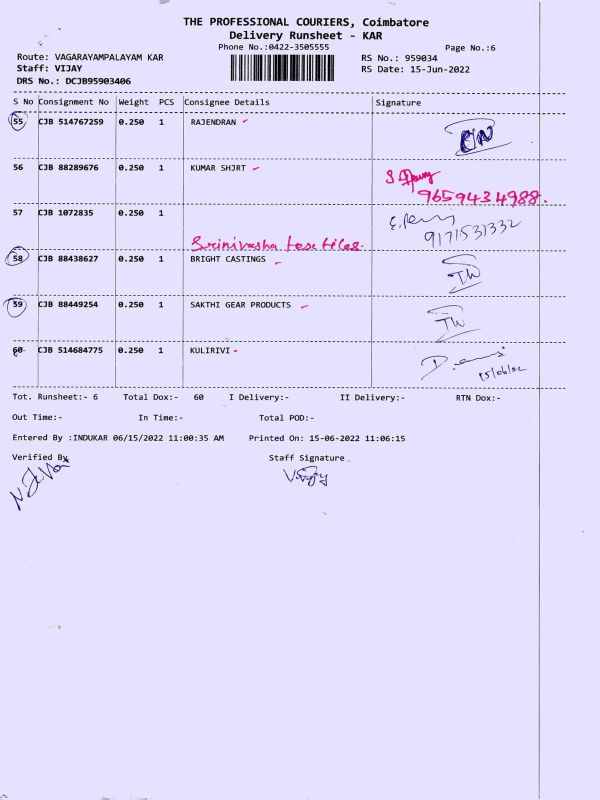 THE PROFESSIONAL COURIERS, Coimbatore
Delivery Runsheet - KAR
Phone No.:0422-3505555
Page No.:6
Route: VAGARAYAMPALAYAM KAR
RS No.: 959034
Staff: VIJAY
RS Date: 15-Jun-2022
DRS No.: DCJB95903406
S No Consignment No Weight PCS Consignee Details Signature
55 CJB 514767259 0.250 1 RAJENDRAN
56 CJB 88289676 0.250 1 KUMAR SHJRT
9659434988.
57 CJB 1072835 0.250 1
9171531332
Srinivasha textiles.
58 CJB 88438627 0.250 1 BRIGHT CASTINGS
59 CJB 88449254 0.250 1 SAKTHI GEAR PRODUCTS
60 CJB 514684775 0.250 1 KULIRIVI
15/06/22
Tot. Runsheet:- 6 Total Dox:- 60 I Delivery:- II Delivery:- RTN Dox:-
Out Time:- In Time:- Total POD:-
Entered By :INDUKAR 06/15/2022 11:00:35 AM Printed On: 15-06-2022 11:06:15
Verified By Staff Signature